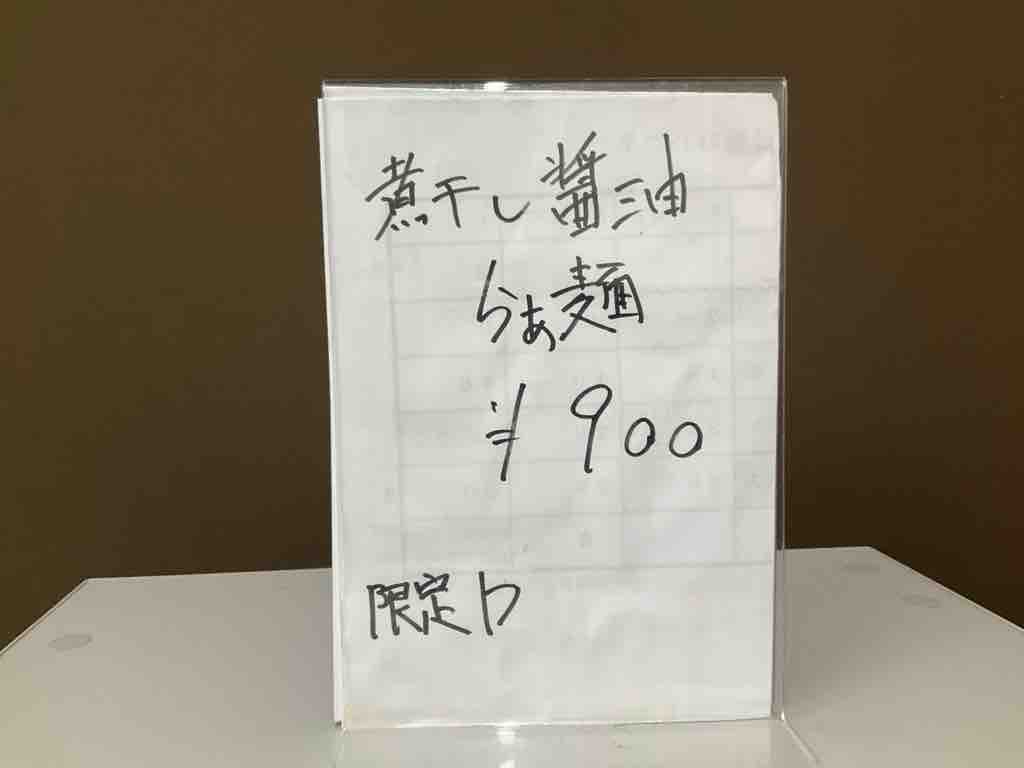 煮干し醤油
らぁ麺
¥900
限定b